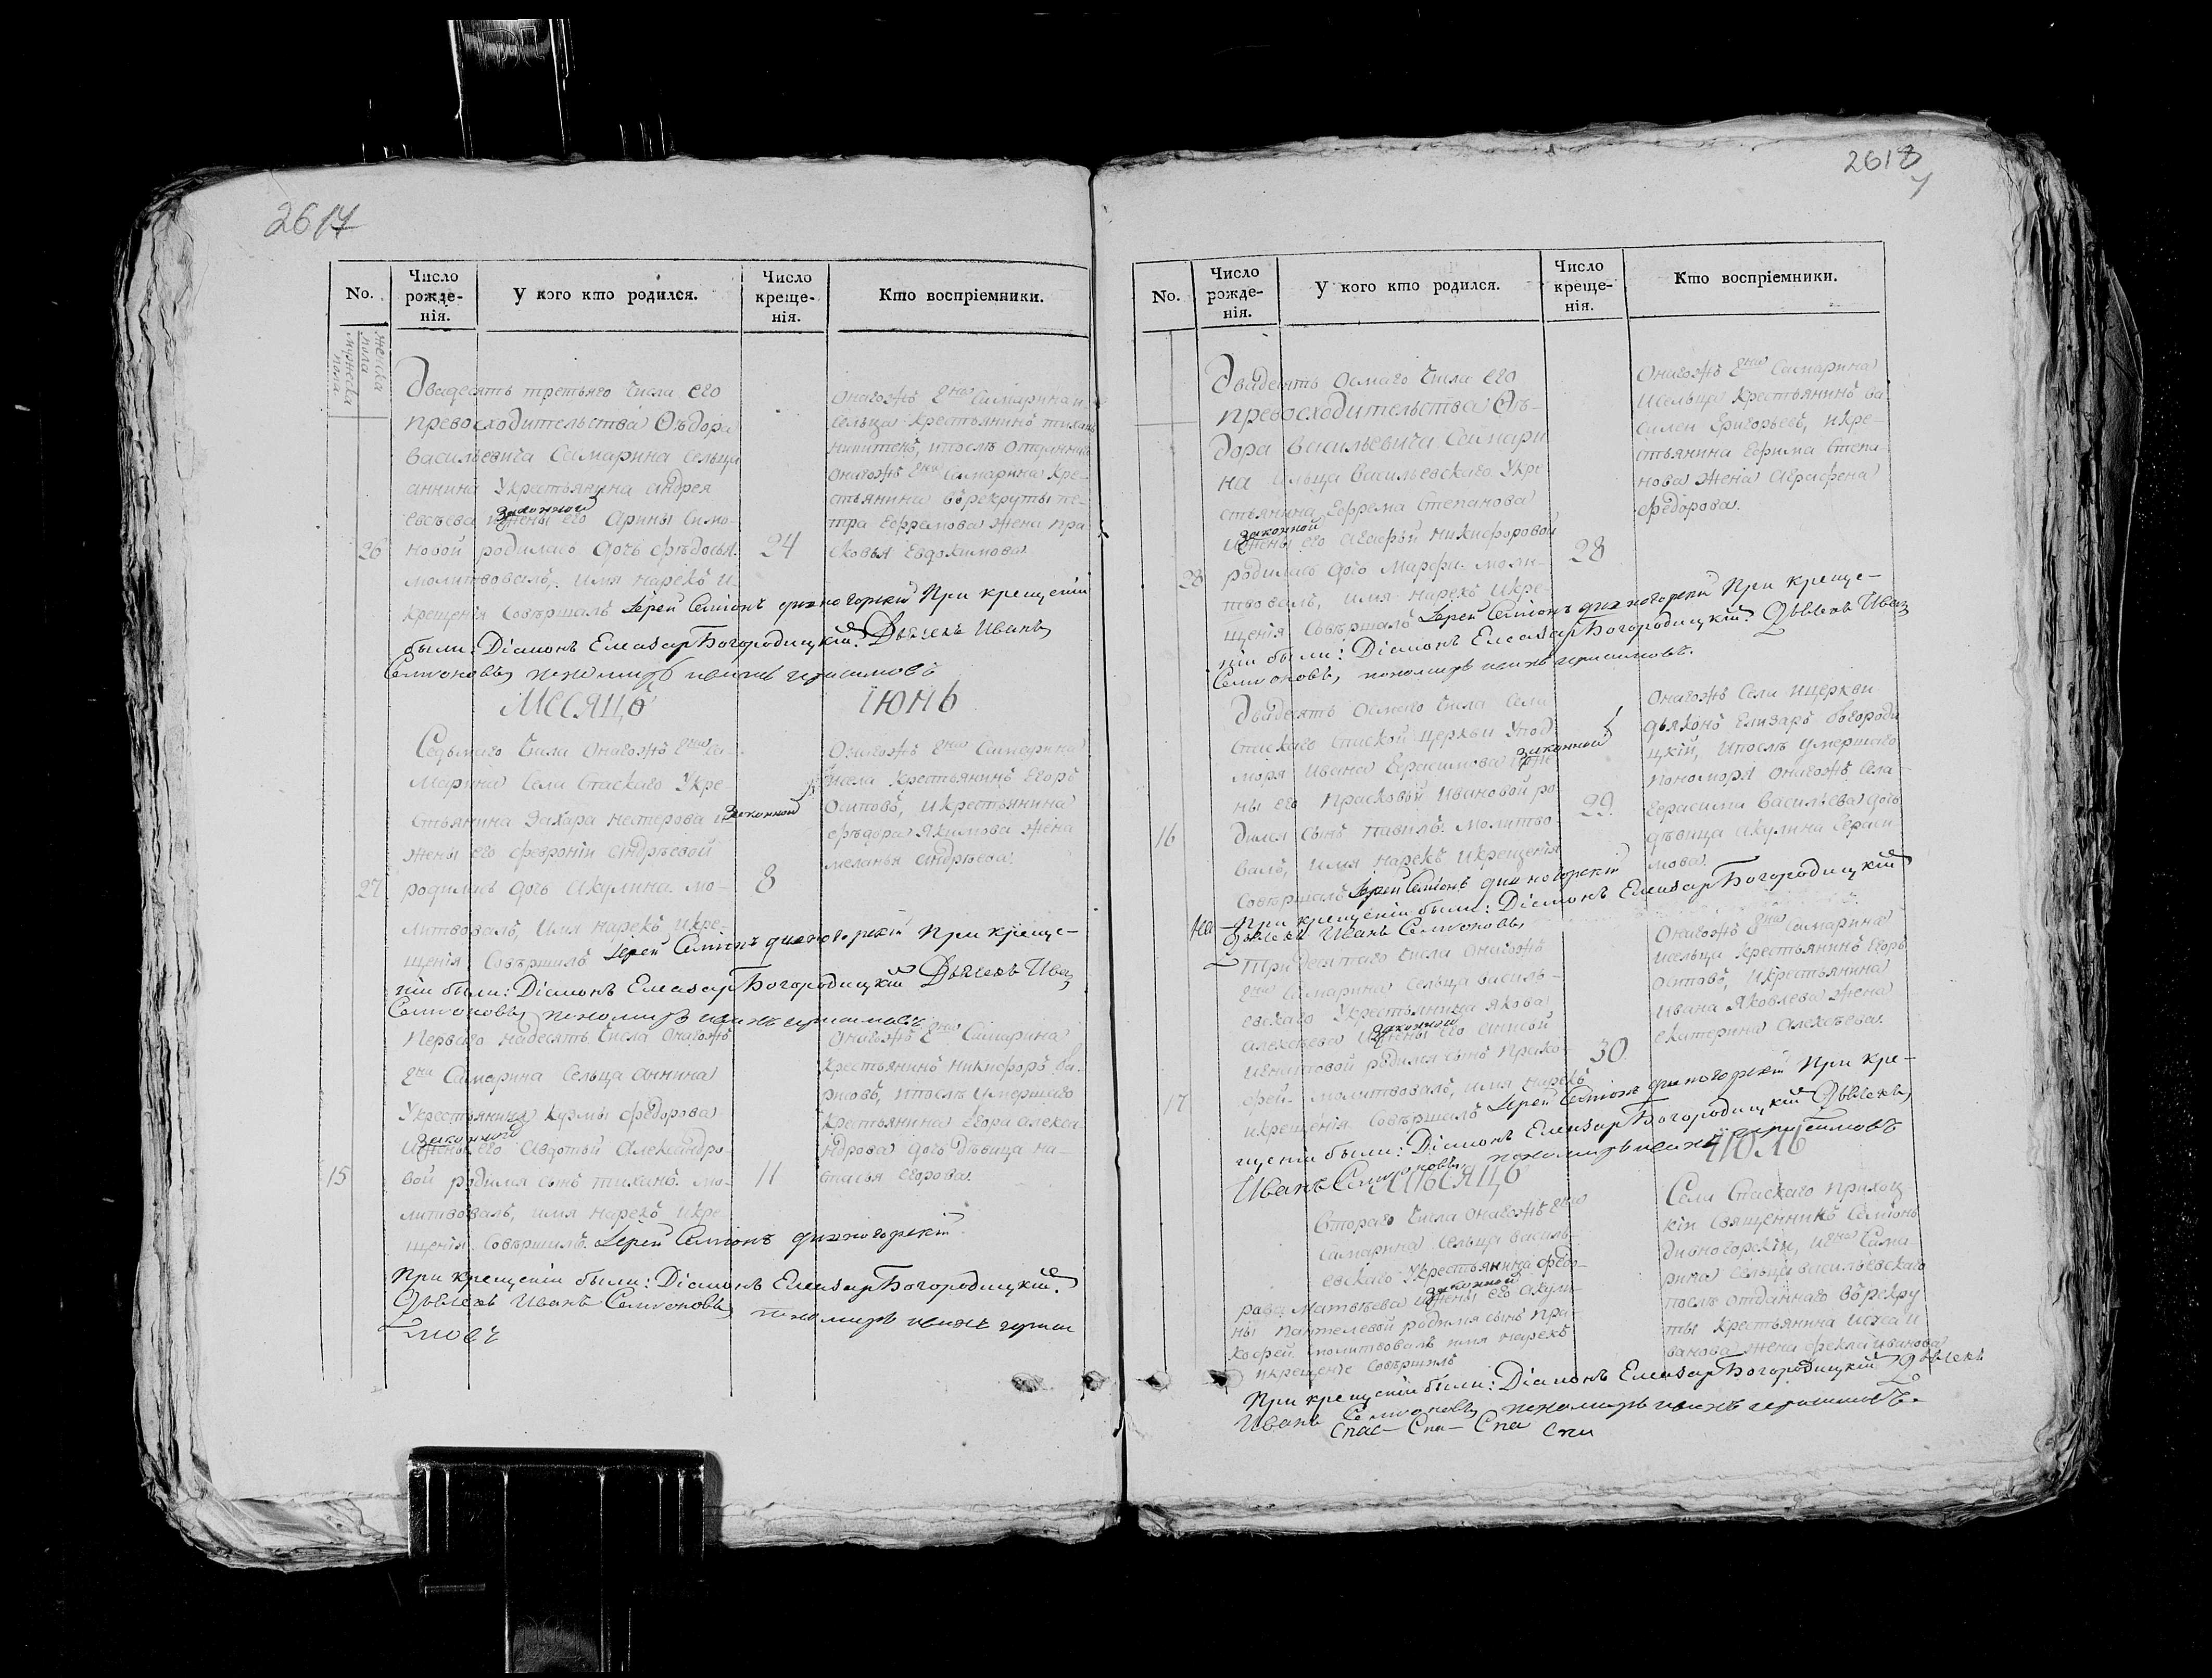 2617
No.
Число рожде-нія.
У кого кто родился.
Число креще-нія.
Кто воспріемники.
женска пола
мужеска пола
Двадесять третьяго числа его
превосходительства Ѳѣдора
васильевича Самарина сельца
аннина Укрестьянина андрея
евсѣева изаконной жены его Арины симо-
26 новой родилась дочь Ѳѣдосья. 24
молитвовалъ, имя нарекъ и
крещенія совѣршалъ Іерей Семіонъ дивногорскій При крещеніи
были: Діаконъ Елеазар Богородицкій. Дьячекъ Иванъ
Семионовъ, пономарь иванъ герасимовъ
онагожъ гна Самарина и
сельца крестьянинъ тиханъ
никитенъ, ипослѣ отданнаго
онагожъ гна Самарина кре-
стьянина врѣкруты пе-
тра Ефремова жена пра-
сковья Евдокимова.
Месяцъ Іюнь
Седьмаго числа онагожъ гна Са-
марина села спаскаго Укре
стьянина Захара нестерова изаконной
жены его февроніи андрѣевой
27 родилась дочь Акулина. мо- 8
литвовалъ, имя нарекъ икре-
щенія совѣршилъ Іерей Семіонъ дивногорскій При креще-
ніи были: Діаконъ Елеазар Богородицкій Дьячекъ Иванъ
Семионовъ, пономарь иванъ герасимовъ
Онагожъ гна Самарина
села крестьянинъ Егоръ
Осиповъ, икрестьянина
фѣдора Якимова жена
меланья андрѣева.
Первого надесять числа онагожъ
гна Самарина сельца аннина
Укрестьянина кузмы федорова
изаконной жены его Авдотьи Александро-
15 вой родился сынъ тиханъ. мо- 11
литвовалъ, имя нарекъ икре
щенія совѣршилъ. Іерей Семіонъ дивногорскій
При крещеніи были: Діаконъ Елеазар Богородицкій.
Дьячекъ Иванъ Семионовъ, пономарь иванъ гераси
мовъ
онагожъ гна Самарина
крестьянинъ никифоръ
ипослѣ умершаго
крестьянина Егора алекса
ндрова дочь дѣвица на-
стасья Егорова.
2618
No.
Число рожде-нія.
У кого кто родился.
Число креще-нія.
Кто воспріемники.
Двадесять Осмаго числа его
превосходительства Ѳѣ-
дора васильевича Самари
на сельца васильевскаго Укре
стьянина Ефрема Степанова
изаконной жены его агафьи никифоровой
28 родилась дочь Марфа. моли- 28
твовалъ, имя нарекъ икре
щенія совѣршалъ Іерей Семіонъ дивногорскій При креще-
ніи были: Діаконъ Елеазар Богородицкій. Дьячекъ Иванъ
Семионовъ, пономарь иванъ герасимовъ.
Онагожъ гна Самарина
исельца крестьянинъ ва
силеи Григорьевъ, икре-
стьянина Ефима степа
нова жена Аграфена
федорова.
Двадесять осмаго числа села
спаскаго спаской церкви Упо
моря Ивана Герасимова изаконной же
ны его Прасковьи ивановой ро 29.
16 дился сынъ павилъ. молитво-
валъ, имя нарекъ икрещенія
совѣршилъ Іерей Семіонъ дивногорскій
При крещеніи были: Діаконъ Елеазар Богородицкій
Дьячекъ Иванъ Семионовъ,
Онагожъ села ицеркви
дьяконъ Елизаръ богороди
цкій, ипослѣ умершаго
пономоря онагожъ села
герасима васильева дочь
дѣвица акулина гераси
мова.
Тридесятаго числа онагожъ
гна Самарина сельца василь-
евскаго Укрестьянина якова
алексѣева изаконной жены его анисьи
игнатовой родился сынъ проко 30.
17 фей. молитвовалъ, имя нарекъ
икрещенія совѣршалъ Іерей Семіонъ дивногорскій При кре-
щеніи были: Діаконъ Елеазар Богородицкій Дьячекъ
Иванъ Семионовъ, пономарь иванъ герасимовъ
Онагожъ гна Самарина
исельца крестьянинъ Егоръ
осиповъ, икрестьянина
ивана яковлева жена
екатерина алексѣева.
Месяцъ Іюль
Втораго числа онагожъ гна
Самарина сельца василь-
евскаго Укрестьянина федо-
рава матвѣева изаконной жены его акули-
ны пантелевой родился сынъ про-
кофей. молитвовалъ имя нарекъ
икрещеніе совѣршилъ
При крещеніи были: Діаконъ Елеазар Богородицкій Дьячекъ
Иванъ Семионовъ, пономарь иванъ герасимовъ.
Спас- Спа- Спа Спа
Села спаскаго приход
кіи священникъ Семіонъ
дивногорскій, игна Сама-
рина сельца васильевскаго
послѣ отданнаго врѣкру
ты крестьянина исая и
ванова жена фекла иванова